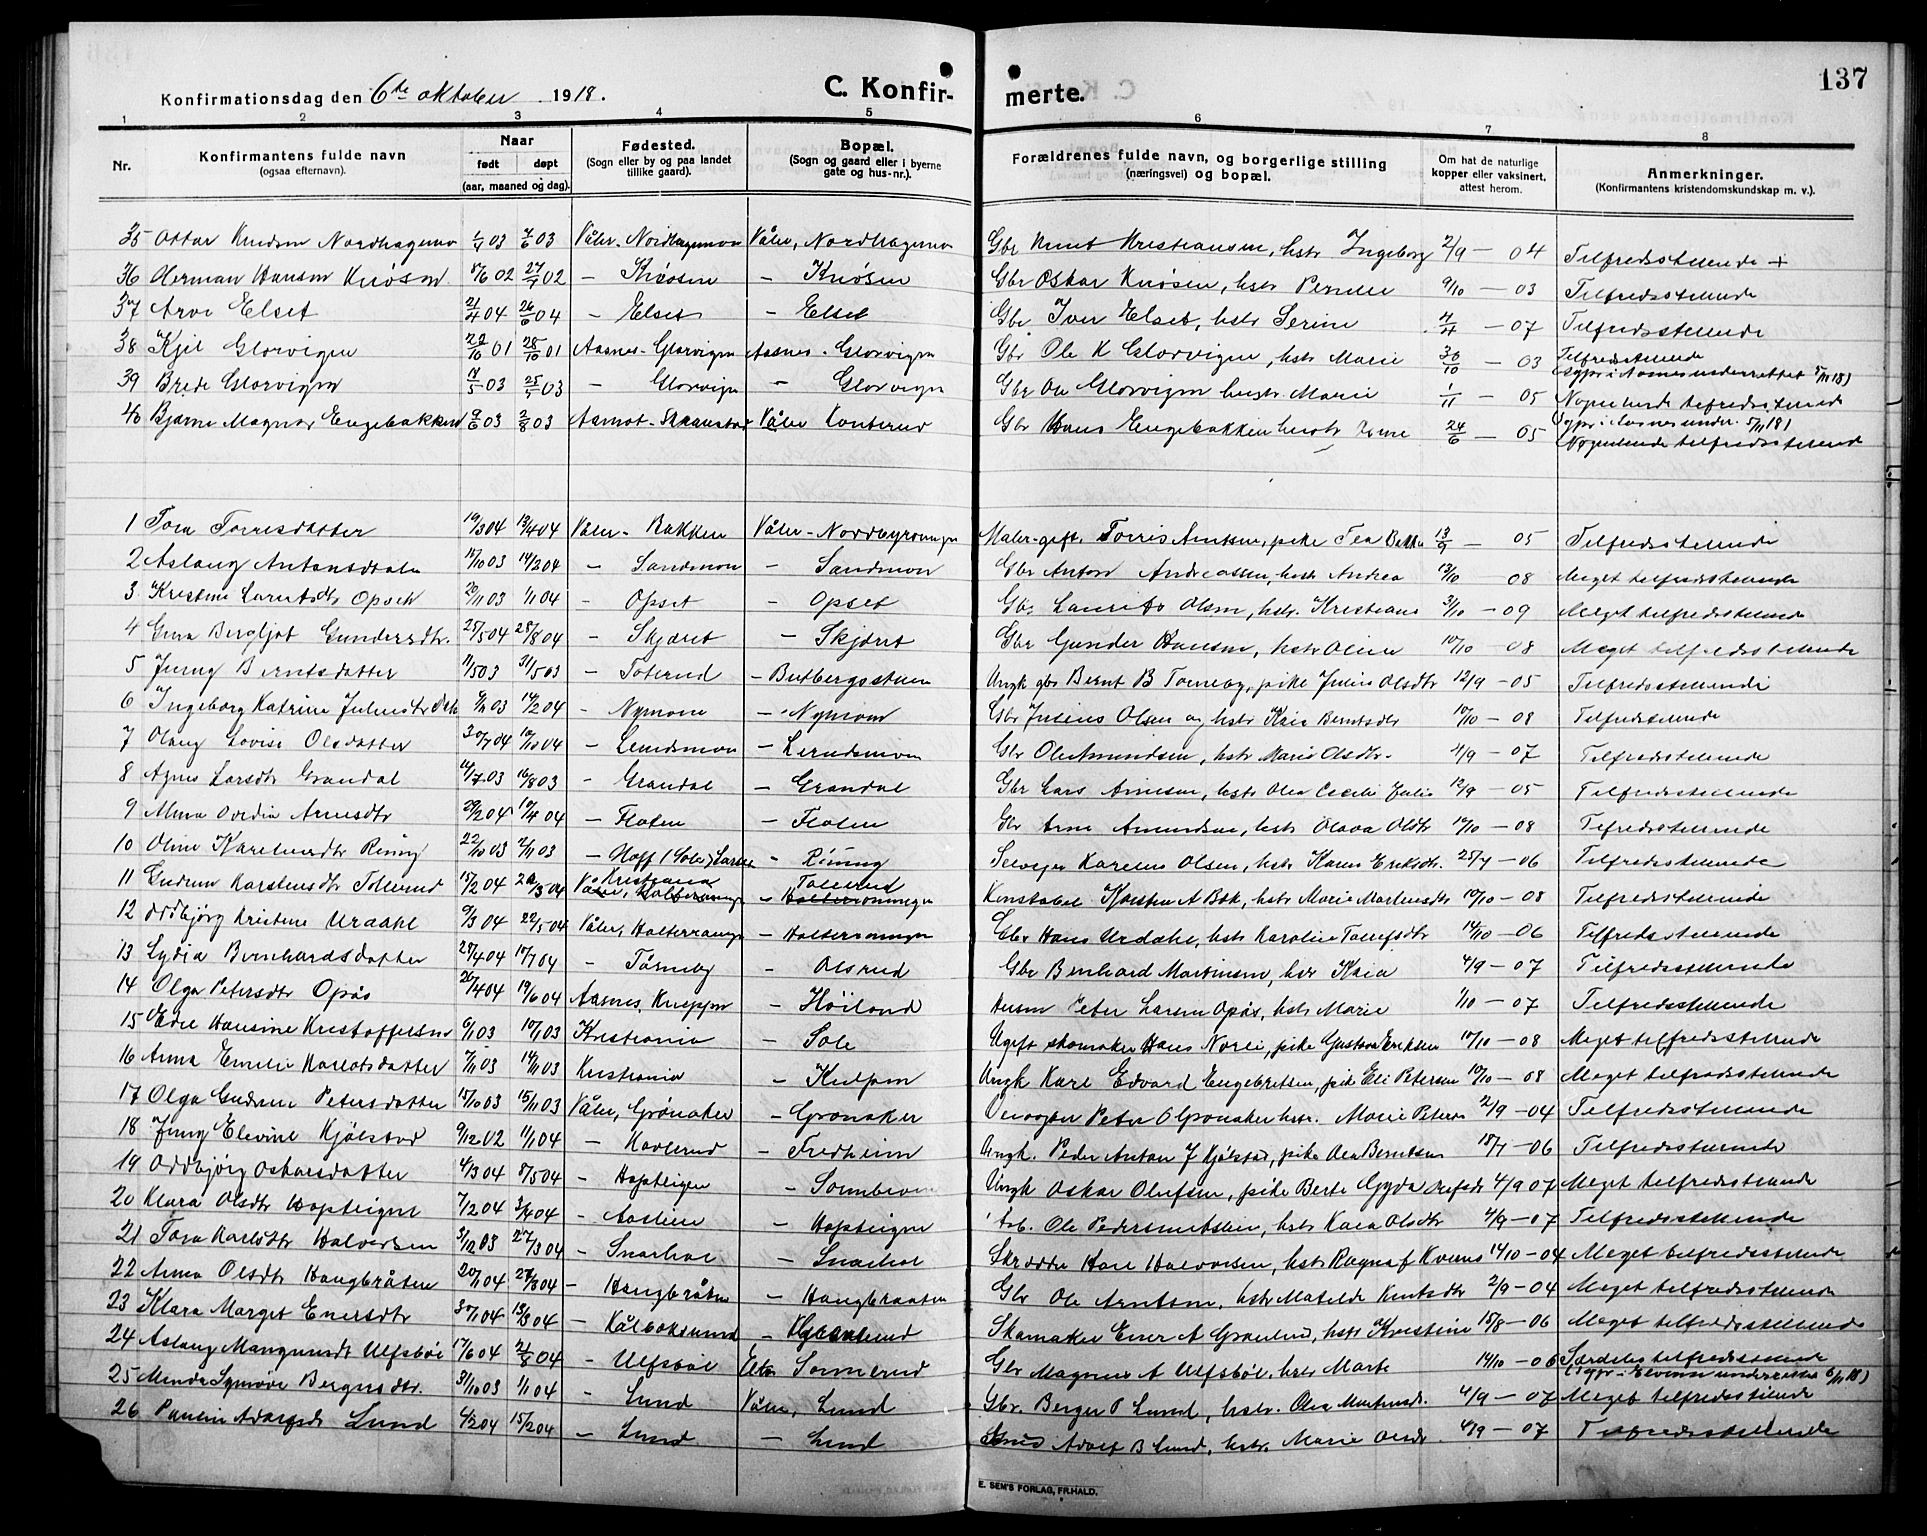 137
Konfirmationsdag den 6te oktober 1918. C. Konfir- merte.
1 2 3 4 5 6 7 8
Nr. Konfirmantens fulde navn (ogsaa efternavn). Naar født døpt (aar, maaned og dag). Fødested. (Sogn eller by og paa landet tillike gaard). Bopæl. (Sogn og gaard eller i byerne gate og hus-nr.). Forældrenes fulde navn, og borgerlige stilling (næringsvei) og bopæl. Om hat de naturlige kopper eller vaksinert, attest herom. Anmerkninger. (Konfirmantens kristendomskundskap m. v.).
35 Ottar Knudsen Nordhagemo 03 7/6 03 Våler - Nordhagemoen Våler, Nordhagemo Gbr Knut Kristiansen, hstr Ingeborg 2/9 - 04 Tilfredsstillende +
36 Herman Hansen Knøsen 02 02 - Knøsen - Knøsen Gbr Oskar Knøsen, hstr 9/10 - 03 Tilfredsstillende
37 Arve Elset 21/4 04 26/6 04 - Elset - Elset Gbr Iver Elset, hstr Serine 4/4 - 07 Tilfredsstillende
38 Kjel Glorvigen 22/10 01 28/10 01 Aasnes - Glorvigen Aasnes - Glorvigen Gbr Ole K Glorvigen, hstr Marie 30/10 - 03 Tilfredsstillende
39 Brede Glorvigen 03 25/5 03 - Glorvigen - Glorvigen Gbr Ole Glorvigen hustr. Marie 1/11 - 05 Nogenlunde tilfredsstillende
40 Bjarne Magnar Engebakken 9/6 03 2/8 03 Aamot - Våler Gbr Hans Engebakken hustr 24/6 - 05 Nogenlunde tilfredsstillende
1 Tora Torrisdatter 19/3 04 04 Våler - Bakken Våler - Nordbyroningen Maler-gift. Torris Arntsen, pike Tea Bakke 13/9 - 05 Tilfredsstillende
2 Aslaug Antonsdatter 03 14/2 04 - Sandmoen - Sandmoen Gbr Anton Andreassen, hstr Andrea /10 08 Meget tilfredsstillende
3 Kristine Lauritsdtr Opset 03 1/1 04 - Opset - Opset Gbr Laurits Olsen, hstr. Kristiane 3/10 - 09 Meget tilfredsstillende
4 Guna Bergljot Gundersdtr. 25/5 04 28/8 04 - Skjæret - Skjæret Gbr Gunder Hansen, hstr Oline 10/10 - 08 Meget tilfredsstillende
5 Jenny Berntsdatter 03 31/5 03 - Toterud - Butbergsstuen Ungk gbr Bernt B Torneby, pike Julie Olsdtr 12/9 - 05 Tilfredsstillende
6 Ingeborg Katrine Juliusdtr 03 14/2 04 - Nymoen - Nymoen Gbr Julius Olsen og hstr Kaia Berntsdtr 10/10 - 08 Tilfredsstillende
7 Olaug Lovise Olsdatter 04 10/10 04 - Lundsmoen - Lundsmoen Gbr Ole Amundsen, hstr Marie Olsdtr. 4/9 - 07 Tilfredsstillende
8 Agnes Larsdtr Grandal 03 16/8 03 - Grandal - Grandal Gbr Lars Arnesen, hstr Olea Cecilie Julie 12/9 - 05 Tilfredsstillende
9 Anna Ovedia Arnesdtr 04 04 - Floten - Floten Gbr Arne Amundsen, hstr Olava Olsdtr 10/10 - 08 Tilfredsstillende
10 Oline Karelinsdtr Rønning 22/10 03 2/11 03 - Hoff (Solør) - Rønning Selveier Karelius Olsen, hstr Karen Eriksdtr. 25/7 - 06 Tilfredsstillende
11 Gudrun Karstensdtr Tollerud 15/2 04 04 Kristiania - Tollerud Konstabel Karsten A Bek, hstr Marie Martinsdtr 10/10 - 08 Tilfredsstillende
12 Oddbjørg Kristine Urdahl 9/3 04 22/5 04 Våler, Holterroninge - Holterroningen Gbr Hans Urdahl, hstr Karoline 14/10 - 06 Tilfredsstillende
13 Lydia Bernhardsdatter 28/4 04 17/7 04 - Tørneby - Olsrud Gbr Bernhard Martinsen, hstr Kaia 4/9 - 07 Tilfredsstillende
14 Olga Petersdtr Opås 26/4 04 19/6 04 Aasnes, - Høiland Peter Larsen Opås, hstr Marie 1/10 - 07 Tilfredsstillende
15 Edle Hansine Kristoffersen 6/1 03 03 Kristiania - Sole Ugift skomaker Hans Norli, pike Gustava Eriksen 10/10 - 08 Meget tilfredsstillende
16 Anna Emilie Karlotsdatter 7/11 03 14/11 03 Kristiania - Ungk Karl Edvard Engebretsen, pike Eli Petersen 10/10 - 08 Meget tilfredsstillende
17 Olga Gudrun Petersdatter 15/10 03 15/11 03 Våler, Grønaker - Grønaker Peter O Grønaker hstr. Marie Peters 2/9 - 04 Tilfredsstillende
18 Jenny Elevine Kjølstad 9/12 02 1/1 04 - - Fredheim Ungk. Peder Anton J Kjølstad, pike Olea Berntsen 18/7 - 06 Tilfredsstillende
19 Oddbjørg Oskarsdatter 4/3 04 8/5 04 - Hopteigen - Ungk Oskar Olufsen, pike Berte Gyda 4/9 07 Meget tilfredsstillende
20 Klara Olsdtr Hopteigen 7/2 04 3/4 04 - Aaslien - Hopteigen Arb. Ole Pedersen Aslien, hstr Kaia Olsdtr 4/9 - 07 Tilfredsstillende
21 Tora Karlsdtr Halvorsen 3/12 03 27/3 04 - Snarhol - Snarhol Skrædder Karl Halvorsen, hstr Ragna 14/10 - 04 Meget tilfredsstillende
22 Anna Olsdtr Haugbråten 20/1 04 27/3 04 - Haugbråten - Haugbraaten Gbr Ole Arntsen, hstr Matilde Knutsdtr 2/9 - 04 Meget tilfredsstillende
23 Klara Marget Enersdtr 04 13/3 04 - Kålboksund - Skomaker Ener A Granlund, hstr Kristine 15/8 - 06 Meget tilfredsstillende
24 Aslaug Magnusdtr Ulfsbøl 17/6 04 21/8 04 - Ulfsbøl Elv. Sonnerud Gbr Magnus A Ulfsbøl, hstr Marte 14/10 - 06 Særdeles tilfredsstillende
25 Minda Synnøve Bergersdtr. 31/10 03 1/1 04 - Lund Våler, Lund Gbr. Berger O Lund, hstr. Olea Martinsd. 4/9 - 07 Meget tilfredsstillende
26 Pauline Adolfsd. Lund 4/2 04 15/2 04 - Lund - Lund Adolf B Lund, hstr Marie Olsdr 4/9 - 07 Tilfredsstillende
E. SEM'S FORLAG, FR.HALD.